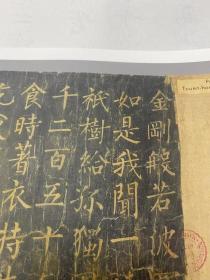 金剛般若波
如是我聞一
祇樹給孤獨
千二百五十
食時著衣持